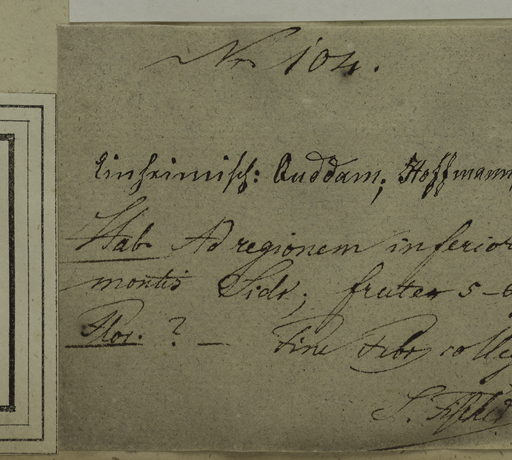 Nr 104.
Einheimisch: Quddam; Hoffmann
Hab. Ad regionem inferior
montis Sidr; frutex 5-6
Flor. ? — Fine Febr colleg